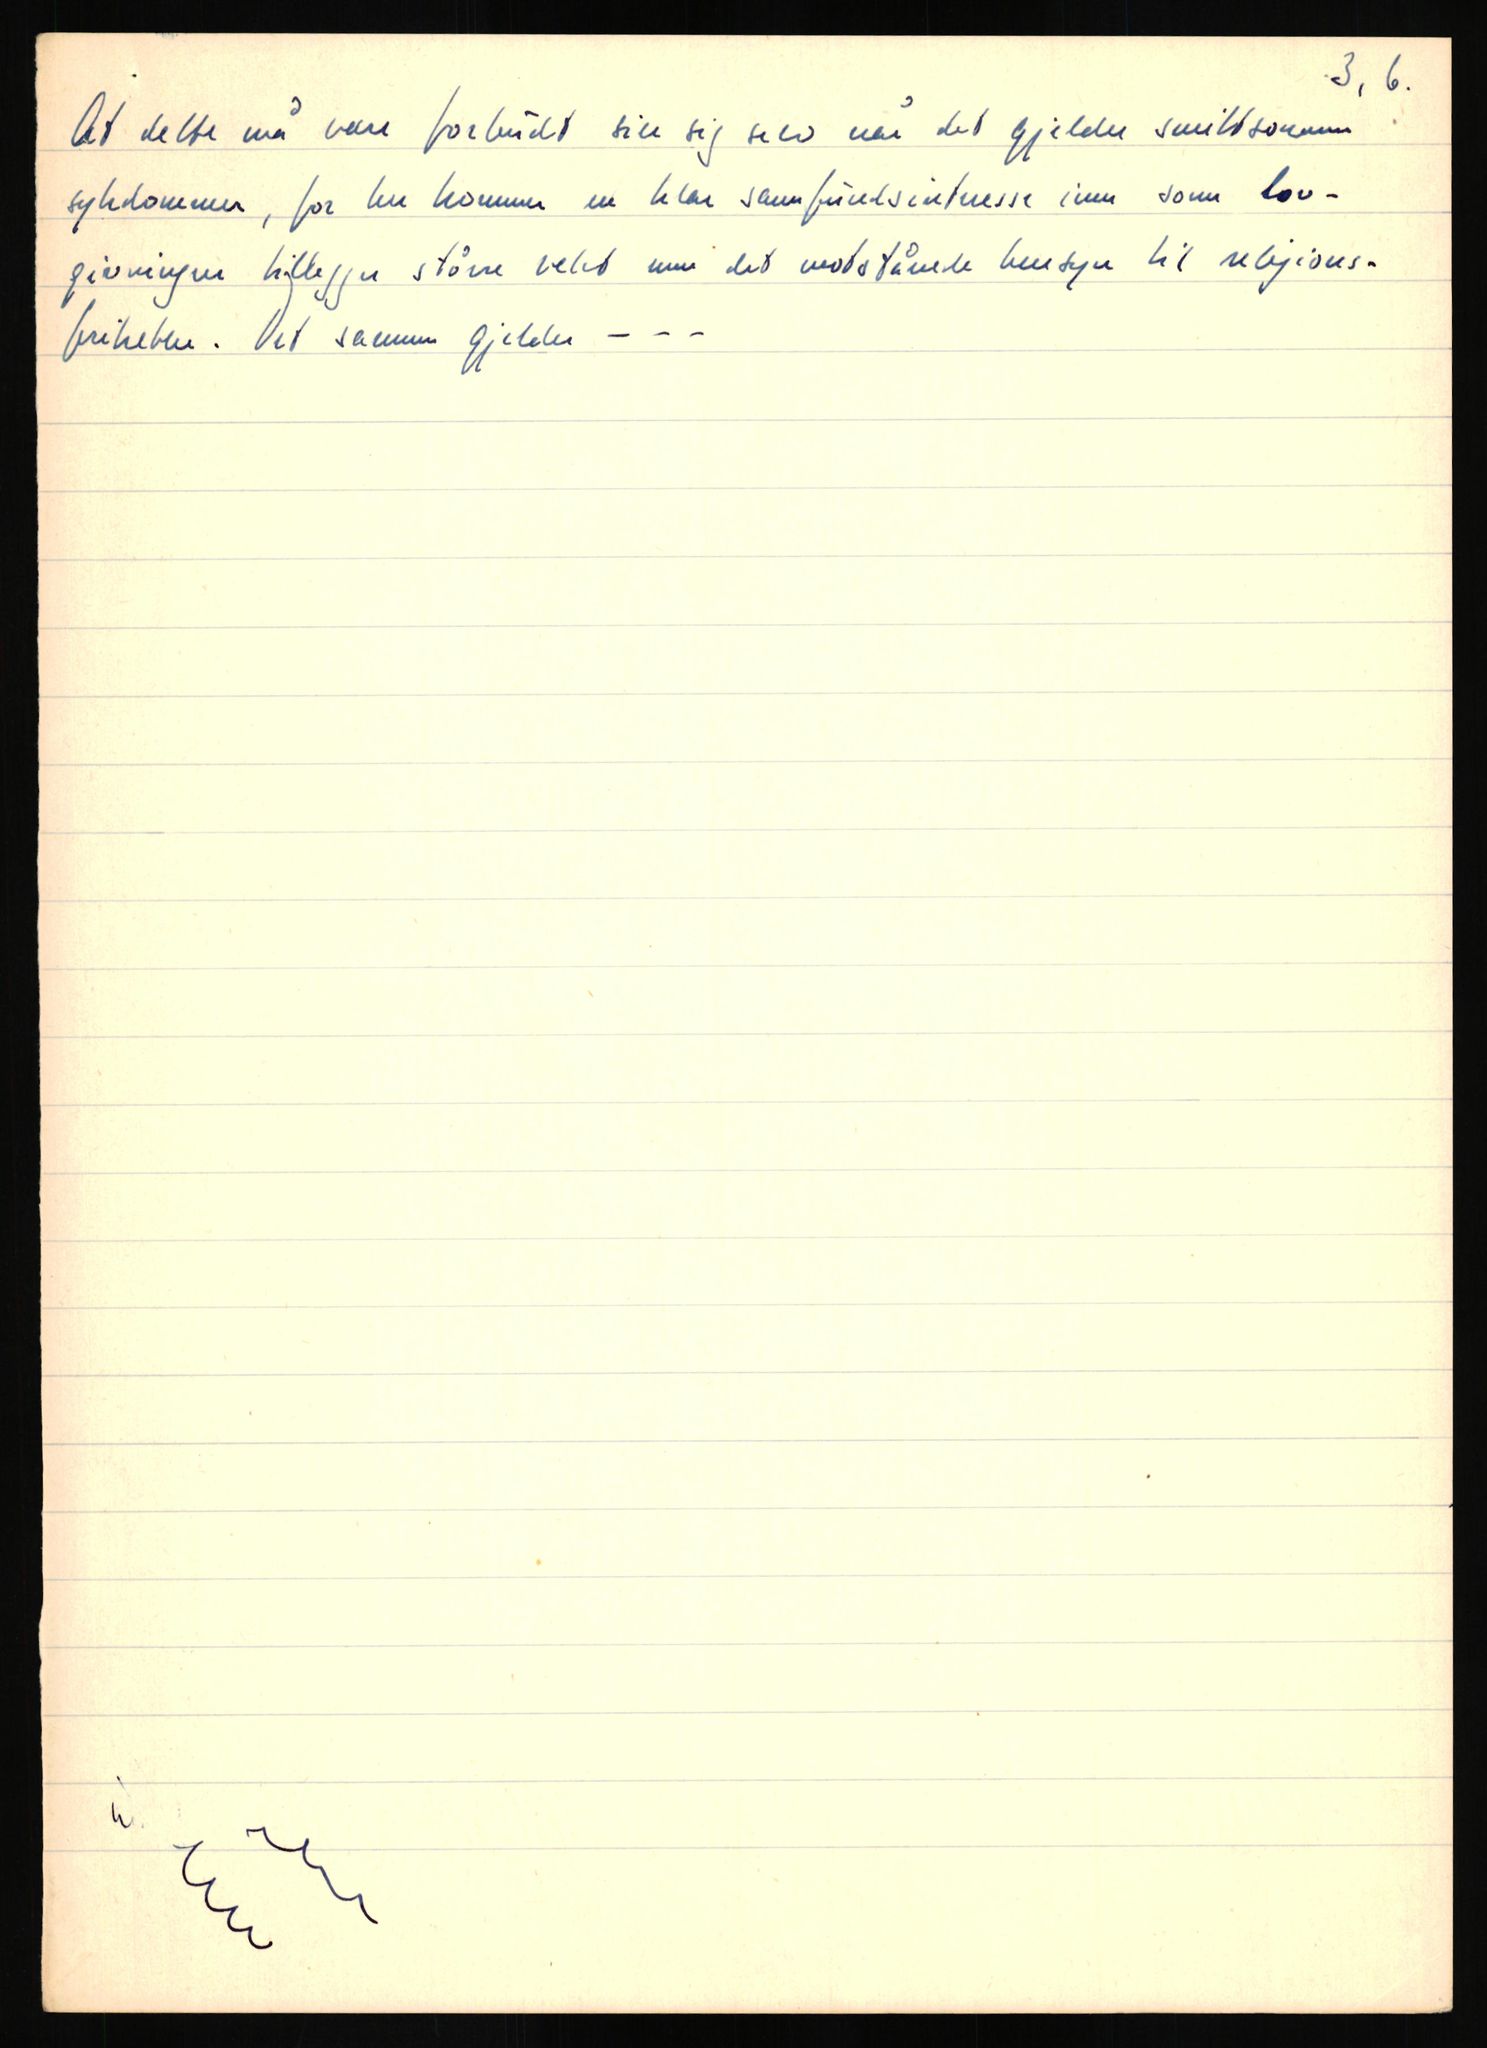 3, 6.
At dette må være forbudt sier sig selv når det gjelder smittsomme
sykdommer, for her kommer en klar samfundsinteresse inn som lov-
givningen tillegger større vekt enn det motstående hensyn til religions-
friheten. Det samme gjelder - - -